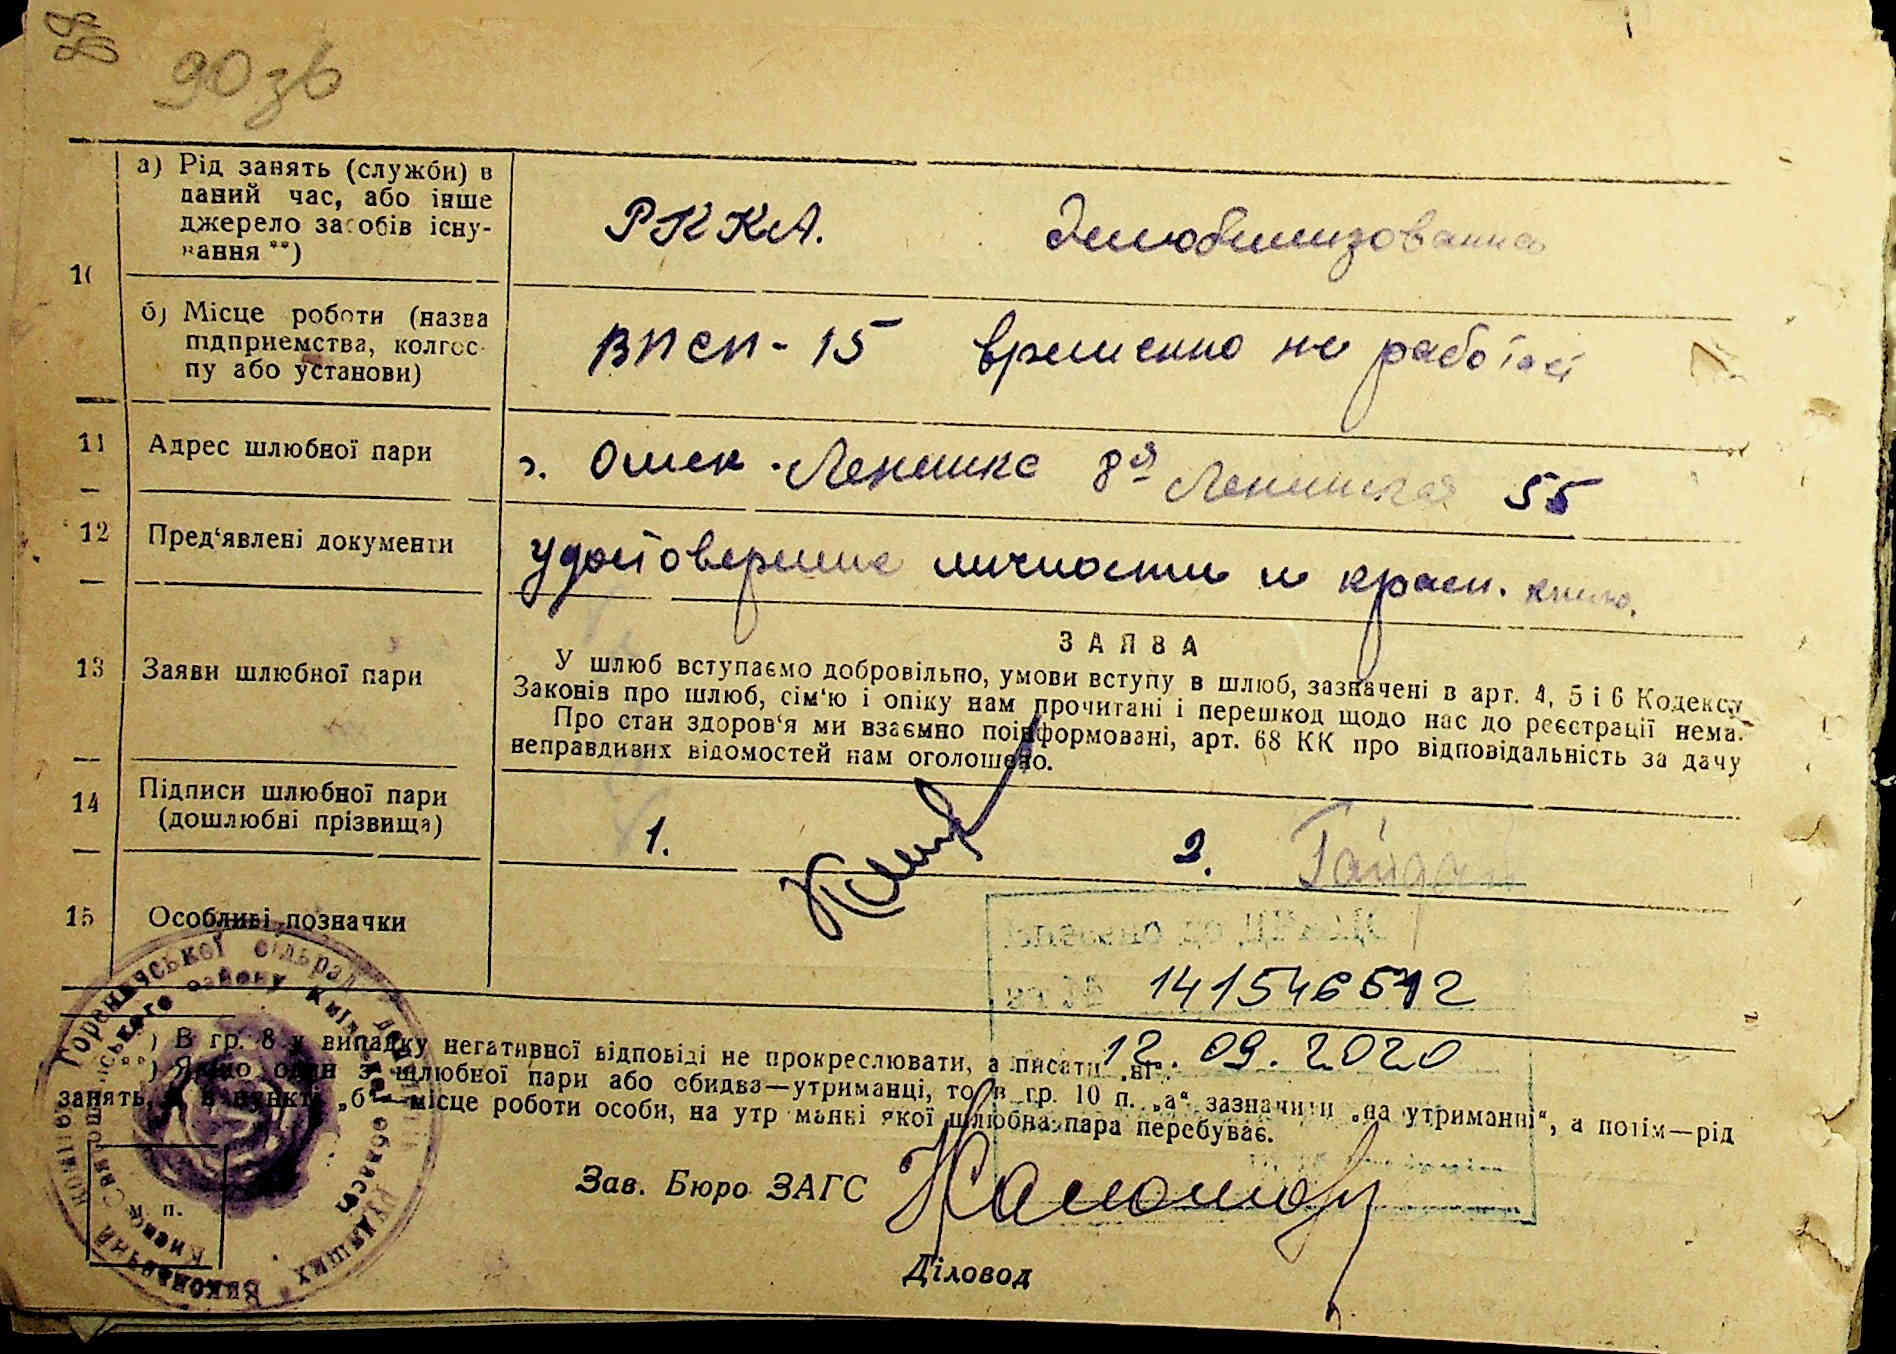 90 зв
10
а) Рід занять (служби) в
даний час, або інше
джерело засобів існу-
вання **)
РККА. Демобилизована
б) Місце роботи (назва
підприємства, колгос-
пу або установи)
ВПСП - 15 временно не работает
11 Адрес шлюбної пари
г. Омск. Ленинск 8я Ленинская 55
12 Пред'явлені документи
удостоверение личности и красн. книж.
13 Заяви шлюбної пари
ЗАЯВА
У шлюб вступаємо добровільно, умови вступу в шлюб, зазначені в арт. 4, 5 і 6 Кодексу
Законів про шлюб, сім'ю і опіку нам прочитані і перешкод щодо нас до реєстрації нема.
Про стан здоров'я ми взаємно поінформовані, арт. 68 КК про відповідальність за дачу
неправдивих відомостей нам оголошено.
14 Підписи шлюбної пари
(дошлюбні прізвища)
1. 2. Гайдай
15 Особливі позначки
141546512
12.09.2020
*) В гр. 8 у випадку негативної відповіді не прокреслювати, а писати „ні".
**) Якщо один з шлюбної пари або обидва—утриманці, то в гр. 10 п. „а" зазначити „на утриманні", а потім—рід
занять, а в пункті „б"—місце роботи особи, на утриманні якої шлюбна пара перебуває.
Зав. Бюро ЗАГС
Діловод
М. П.